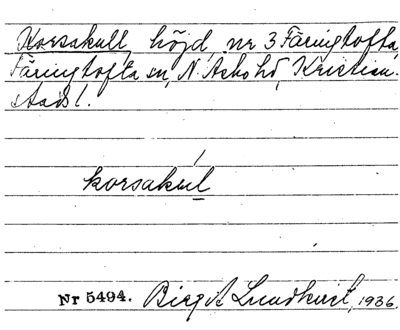 Korsakull, höjd, nr 3 Färingtofta,
Färingtofta sn, N. Åsbo hd, Kristian-
stads l.
korsakúl
Nr 5494. Birgit Lundkvist, 1936.